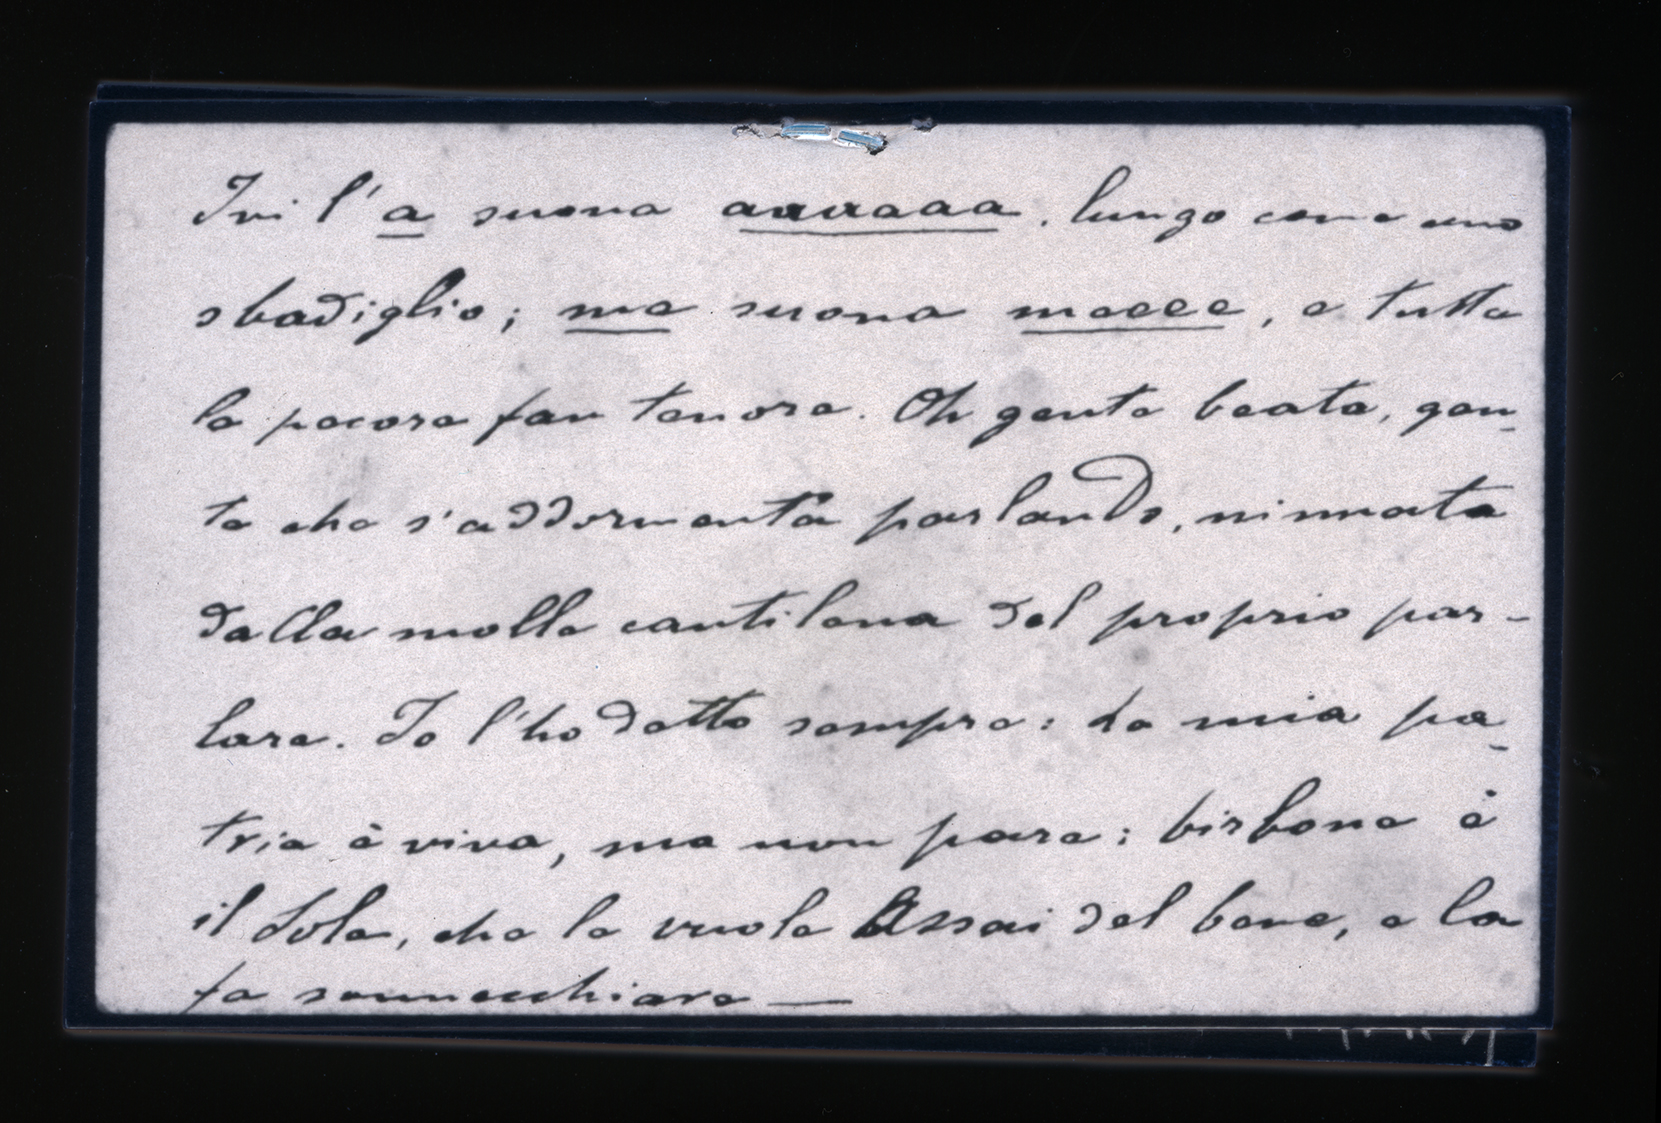 Ivi l'a suona aaaaaaa, lungo come uno
sbadiglio; me suona meeee, e tutte
le pecore fan tenore. Oh gente beata, gen-
te che s'addormenta parlando, ninnata
dalla molle cantilena del proprio par-
lare. Io l'ho detto sempre: La mia pa-
tria è viva, ma non pare; birbone è
il Sole, che le vuole Assai del bene, e la
fa sonnecchiare —